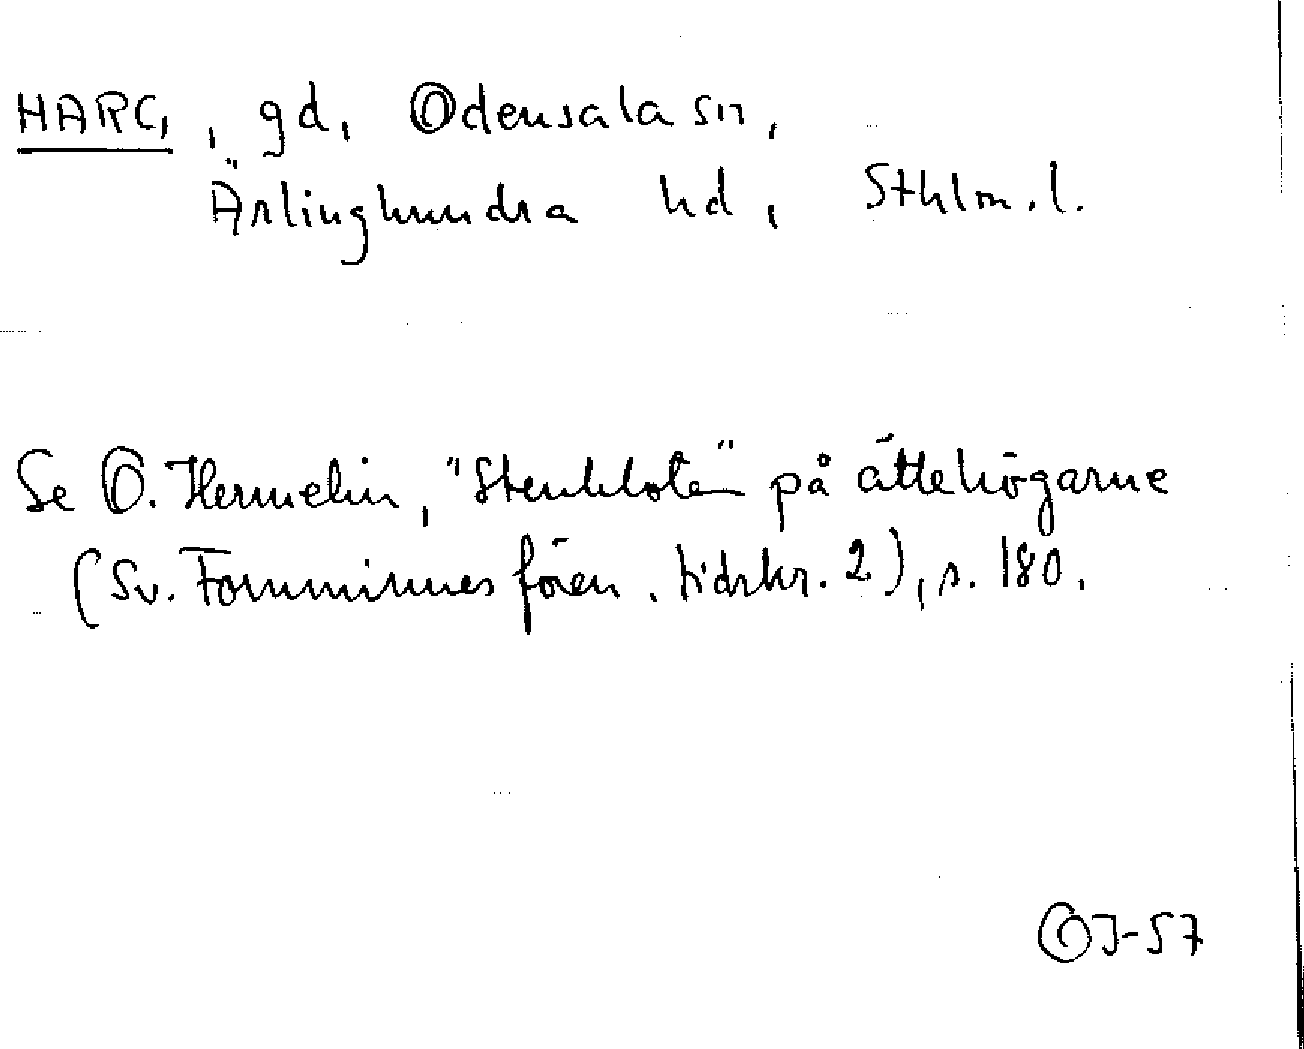 HARG, gd, Odensala sn,
Ärlinghundra hd, Sthlm.l.
Se O. Hermelin, "Stenkloten" på ättehögarne
(Sv. Fornminnesfören. tidskr. 2), s. 180.
OJ-57